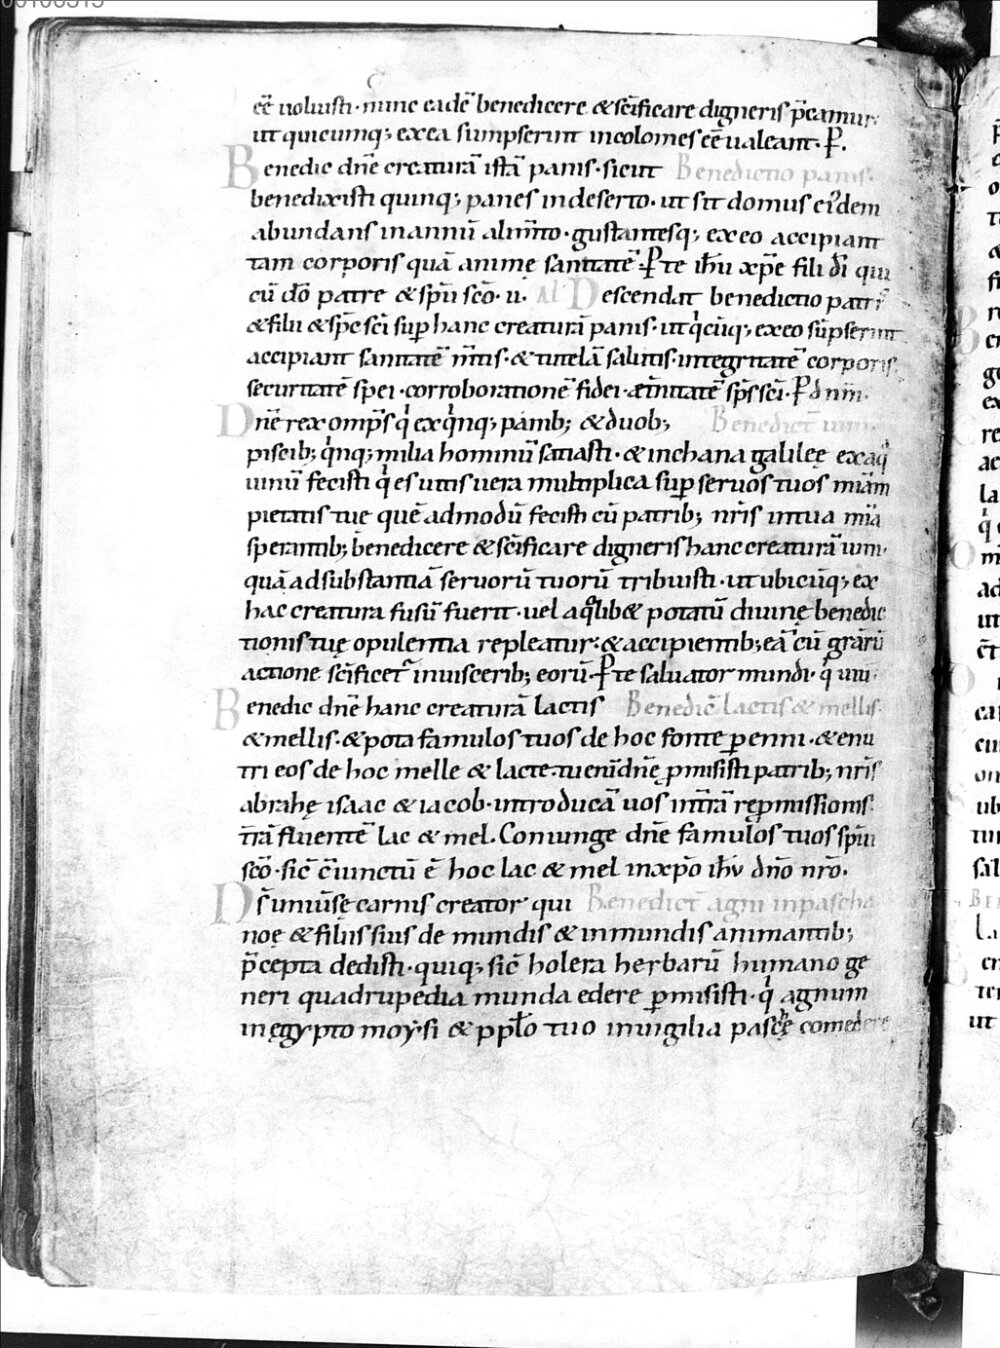 eē uoluisti· nunc eadē benedicere & sc̄ificare digneris p̄camur·
ut quicumq; ex ea sumpserint incolomes eē ualeant· P̱.
Benedic dn̄e creaturā istā panis· sicut Benedictio panis·
benedixisti quinq; panes in deserto· ut sit domus eidem
abundans in annū alim̄to· gustantesq; ex eo accipiant
tam corporis quā animę sanitatē· P̱ te ih̄u xp̄e fili dī qui
cū dō patre & sp̄u scō· u· Al Descendat benedictio patris
& filii & sp̄c scī sup hanc creaturā panis· ut qicūq; ex eo sūpserint
accipiant sanitatē m̄tis· & tutelā salutis· integritatē corporis·
securitatē spei· corroborationē fidei· æt̄nitatē sp̄s scī· P̱ dnm̄·
Dn̄e rex omp̄s qi ex qinq; panib; & duob; Benedict̄ uini
piscib; qinq; milia hominū satiasti· & in chana galileę ex aqa
uinū fecisti qi es uitis uera multiplica sup seruos tuos mi̅am
pietatis tuę quē admodū fecisti cū patrib; nr̄is in tua mi̅a
sperantib; benedicere & sc̄ificare digneris hanc creaturā uini·
quā ad substantiā seruorū tuorū tribuisti· ut ubicūq; ex
hac creatura fusū fuerit· uel a qilib& potatū diuinę benedic
tionis tuę opulentia repleatur· & accipientib; eā cū gr̄arū
actione sc̄ificetr̄ in uiscerib; eorū· P̱ te saluator mundi· qi uiui·
Benedic dn̄e hanc creaturā lactis Benedic̄ lactis & mellis·
& mellis· & pota famulos tuos de hoc fonte p̱enni· & enu
tri eos de hoc melle & lacte· tu enī dn̄ę pmisisti patrib; nr̄is
abrahę isaac & iacob· introducā uos in t̄rā rep̱missionis·
t̄rā fluentē lac & mel. Coniunge dn̄e famulos tuos sp̄u
scō· sic̄ c̄iunctū ē hoc lac & mel in xp̄o ih̄u dn̄o nr̄o·
Ds̄ uniūsę carnis creator qui Benedict̄ agni in pascha
noę & filiis suis de mundis & inmundis animantib;
p̄cepta dedisti· quiq; sic̄ holera herbarū humano ge
neri quadrupedia munda edere p̱misisti· qi agnum
in ęgypto moysi & pplo tuo in uigilia paschę comedere